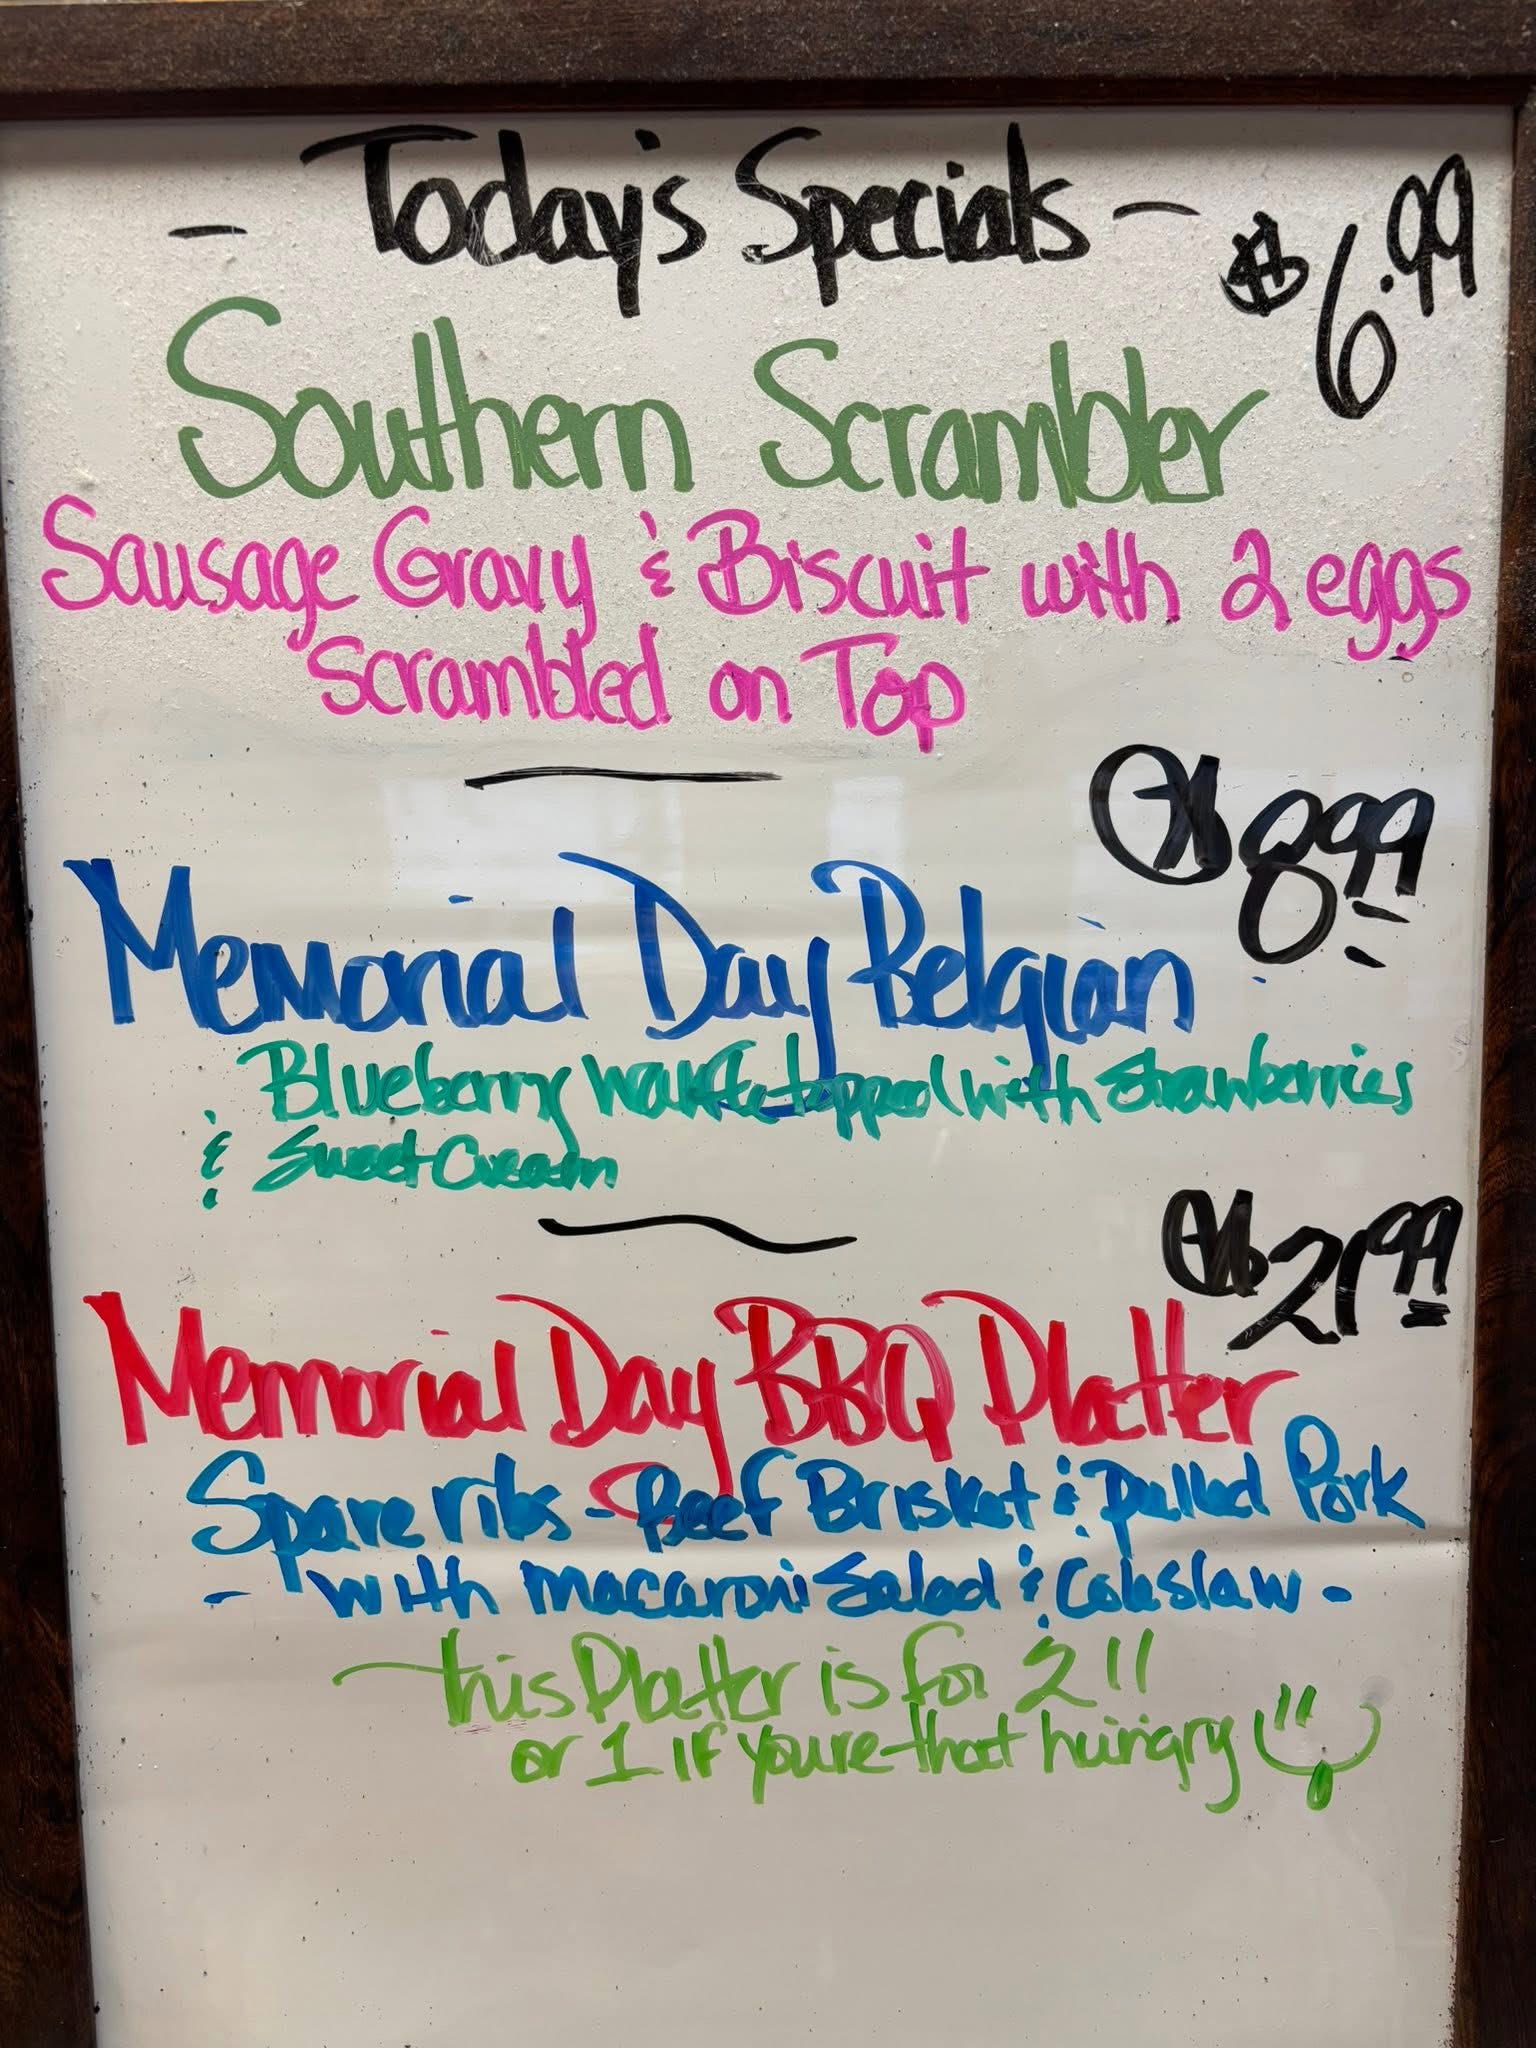 - Today's Specials -
$6.99
Southern Scrambler
Sausage Gravy & Biscuit with 2 eggs
Scrambled on Top
$8.99
Memorial Day Belgian
Blueberry Waffle topped with Strawberries
& Sweet Cream
$21.99
Memorial Day BBQ Platter
Spare ribs - Beef Brisket & Pulled Pork
- with macaroni Salad & Coleslaw -
This Platter is for 2!!
or 1 if you're that hungry